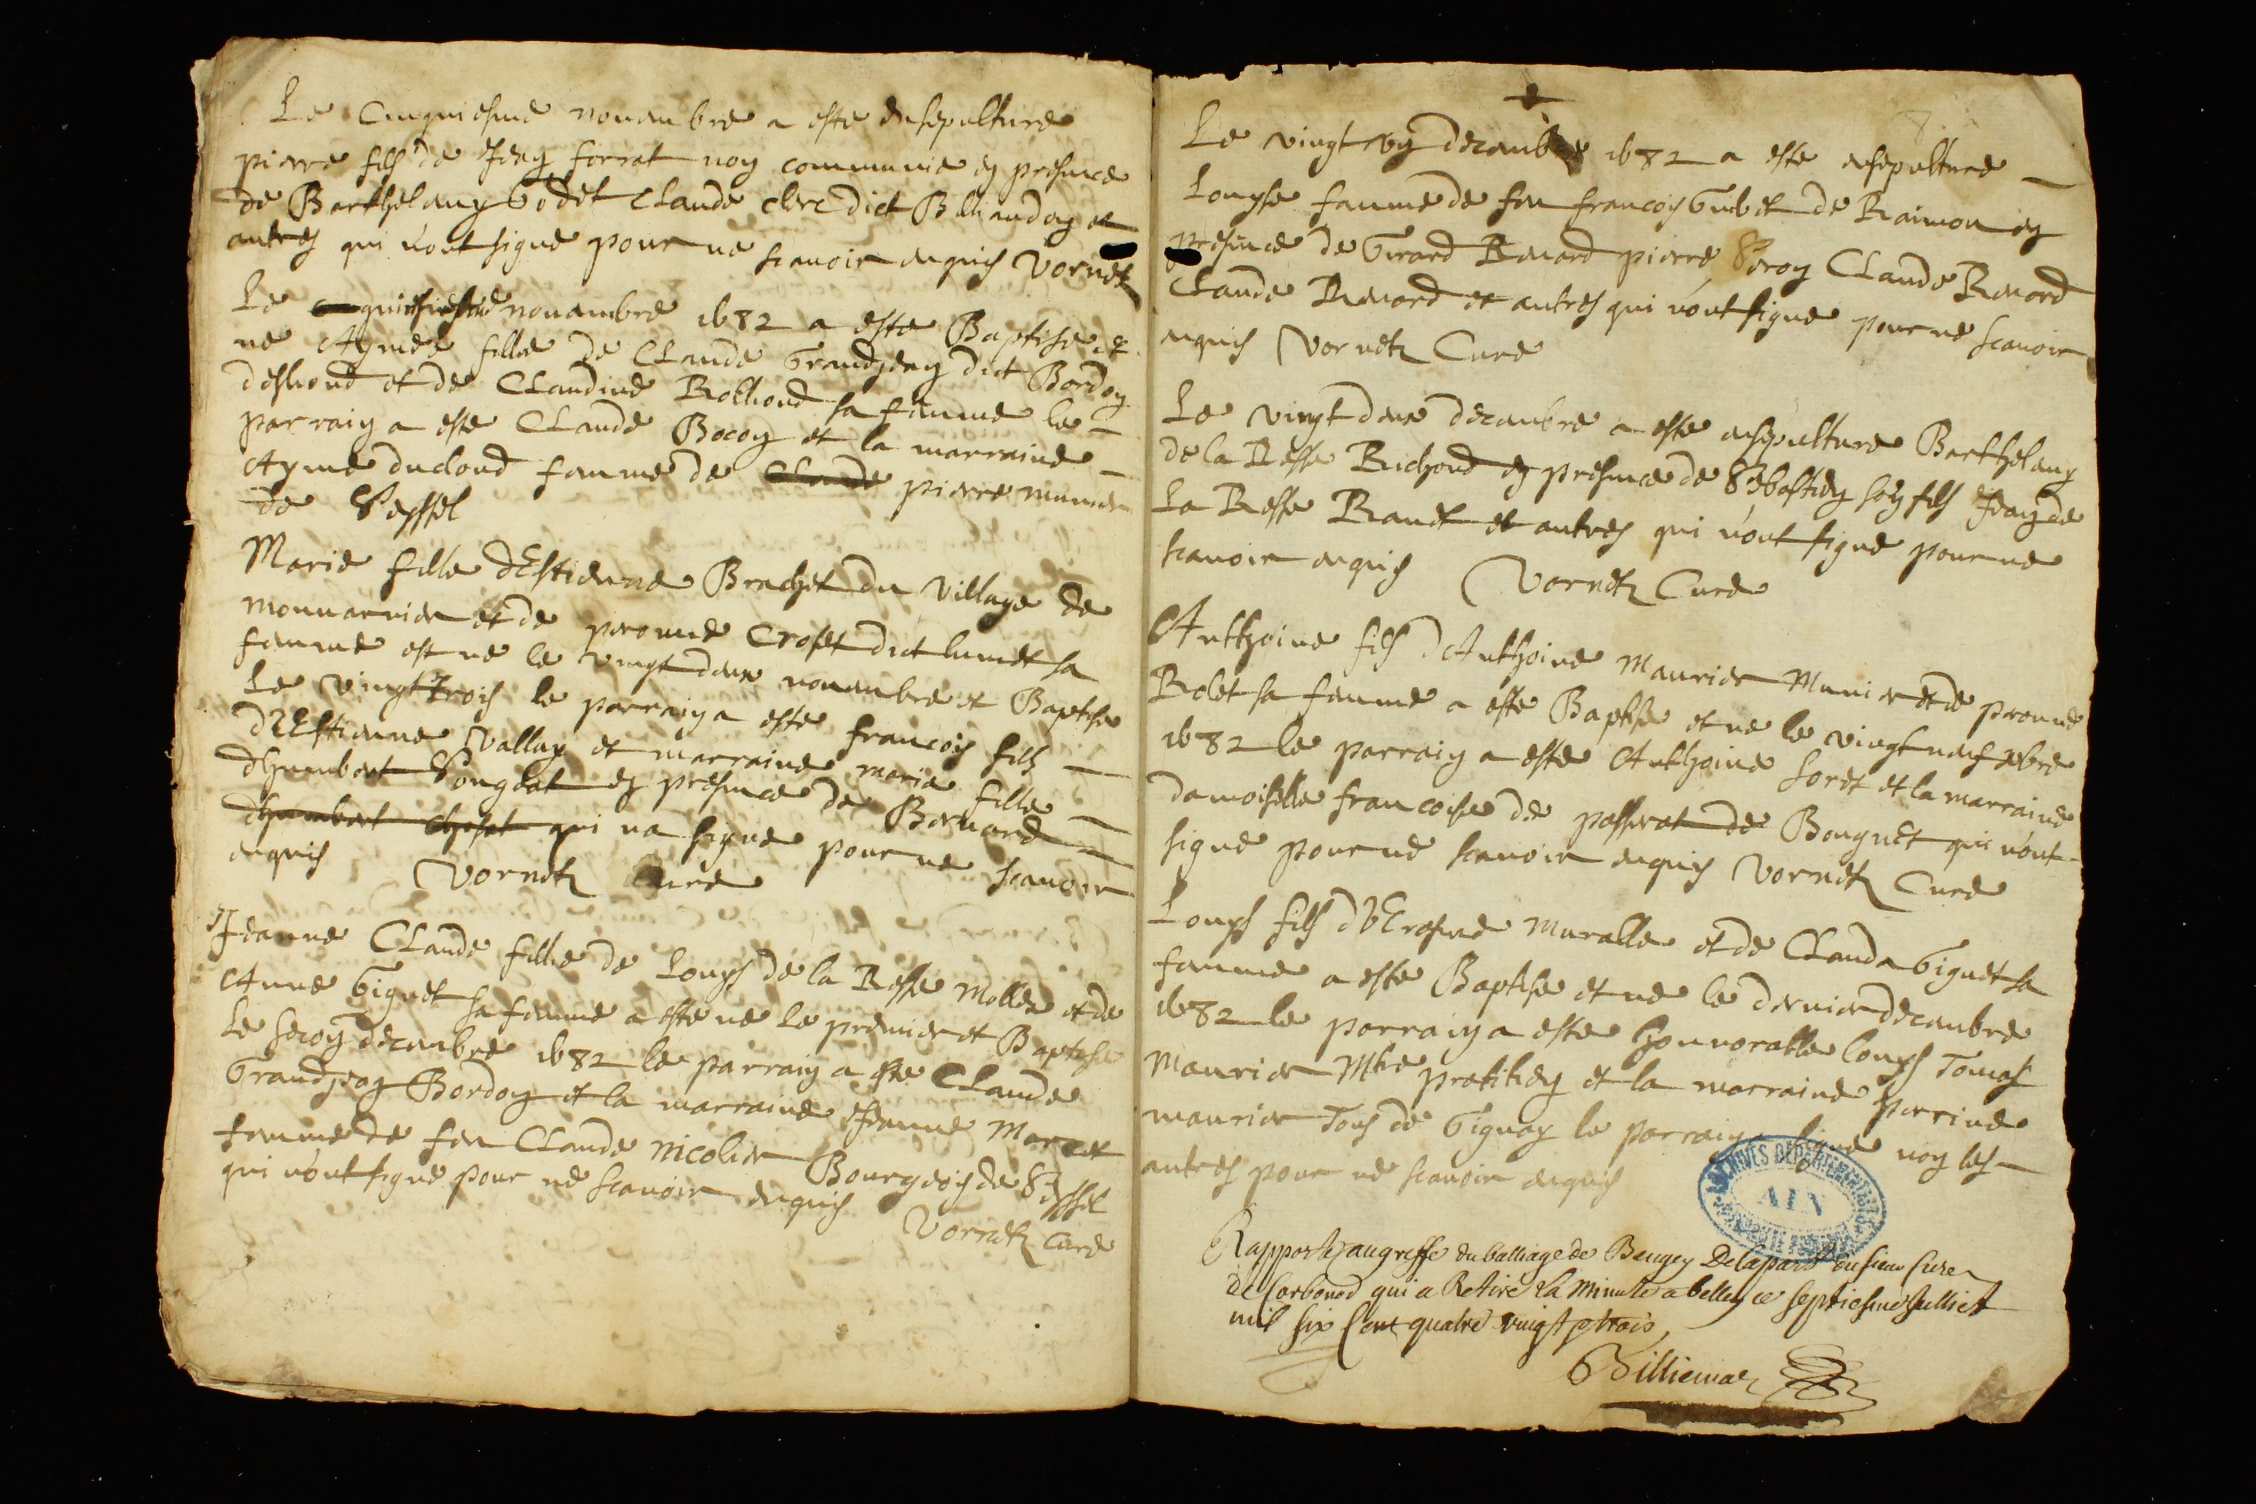 Le Cinquiesme novambre a este ensepulture
pierre fils de Jean forrat non communie en presence
de Barthelamy Godet Claude clerc dict Billiandon et
autres qui n'ont signe pour ne scavoir enquis Vornetz
Le quinsiesme novambre 1682 a este Baptise et
ne Aymee fillie de Claude Grandjean dict Bordon
desliond et de Claudine Rolliond sa famme le
parrain a este Claude Bocon et la marraine
Ayme ducloud famme de Claude pierre munier
de Seyssel
Marie fille d'Estienne Brachet du village de
monvarnier et de peronne Croset dict lumet sa
famme est ne le vingt deux novambre et Baptise
Le vingt trois le parrain a este francois fils
d'Estienne Vallay et marraine marie fille
d'humbert Songeat en presence de Bernard
d'humbert Choset qui na signe pour ne scavoir
enquis Vornetz Cure
Jeanne Claude fillie de Louys de la Resse Mollex et de
Anne Giguet sa famme a este ne le premier et Baptise
Le secon decambre 1682 le parrain a este Claude
Grandjean Bordon et la marraine Jeanne Marcet
famme de feu Claude Nicolier Bourgeois de Seyssel
qui n'ont signe pour ne scavoir enquis
Vornetz Cure
Le vingt un decambre 1682 a este ensepulture
Louyse famme de feu francois Gubet de Raimon en
presence de Girard Revard pierre Seron Claude Revard
Claude Revard et autres qui n'ont signe pour ne scavoir
enquis Vornetz Cure
Le vingt deux decambre a este ensepulture Barthelamy
de la Resse Richond en presence de Sebastien son fils Jean de
La Resse Ravet et autres qui n'ont signe pour ne
scavoir enquis Vornetz Cure
Anthoine fils d'Anthoine Maurier Munier et de peronne
Rolet sa famme a este Baptise et ne le vingt neuf xbre
1682 le parrain a este Anthoine Soret et la marraine
damoiselle francoise de passerat de Bougnet qui n'ont
signe pour ne scavoir enquis Vornetz Cure
Louys fils d'Erasme Muralle et de Clauda Giguet sa
famme a este Baptise et ne le dernier decambre
1682 le parrain a este honnorable louys Tomas
Maurier Mtre pratitien et la marraine perrine
maurier Tous de Gignay le parrain a signe non les
autres pour ne scavoir enquis
ARCHIVES DEPARTEMENTALES
AIN
Rapporté au greffe du balliage de Beugey De la part du sieur Cure
de Corbonod qui a Retiré la Minute a belley ce septiesme Julliet
mil six Cent quatre vingt trois
Billiemaz